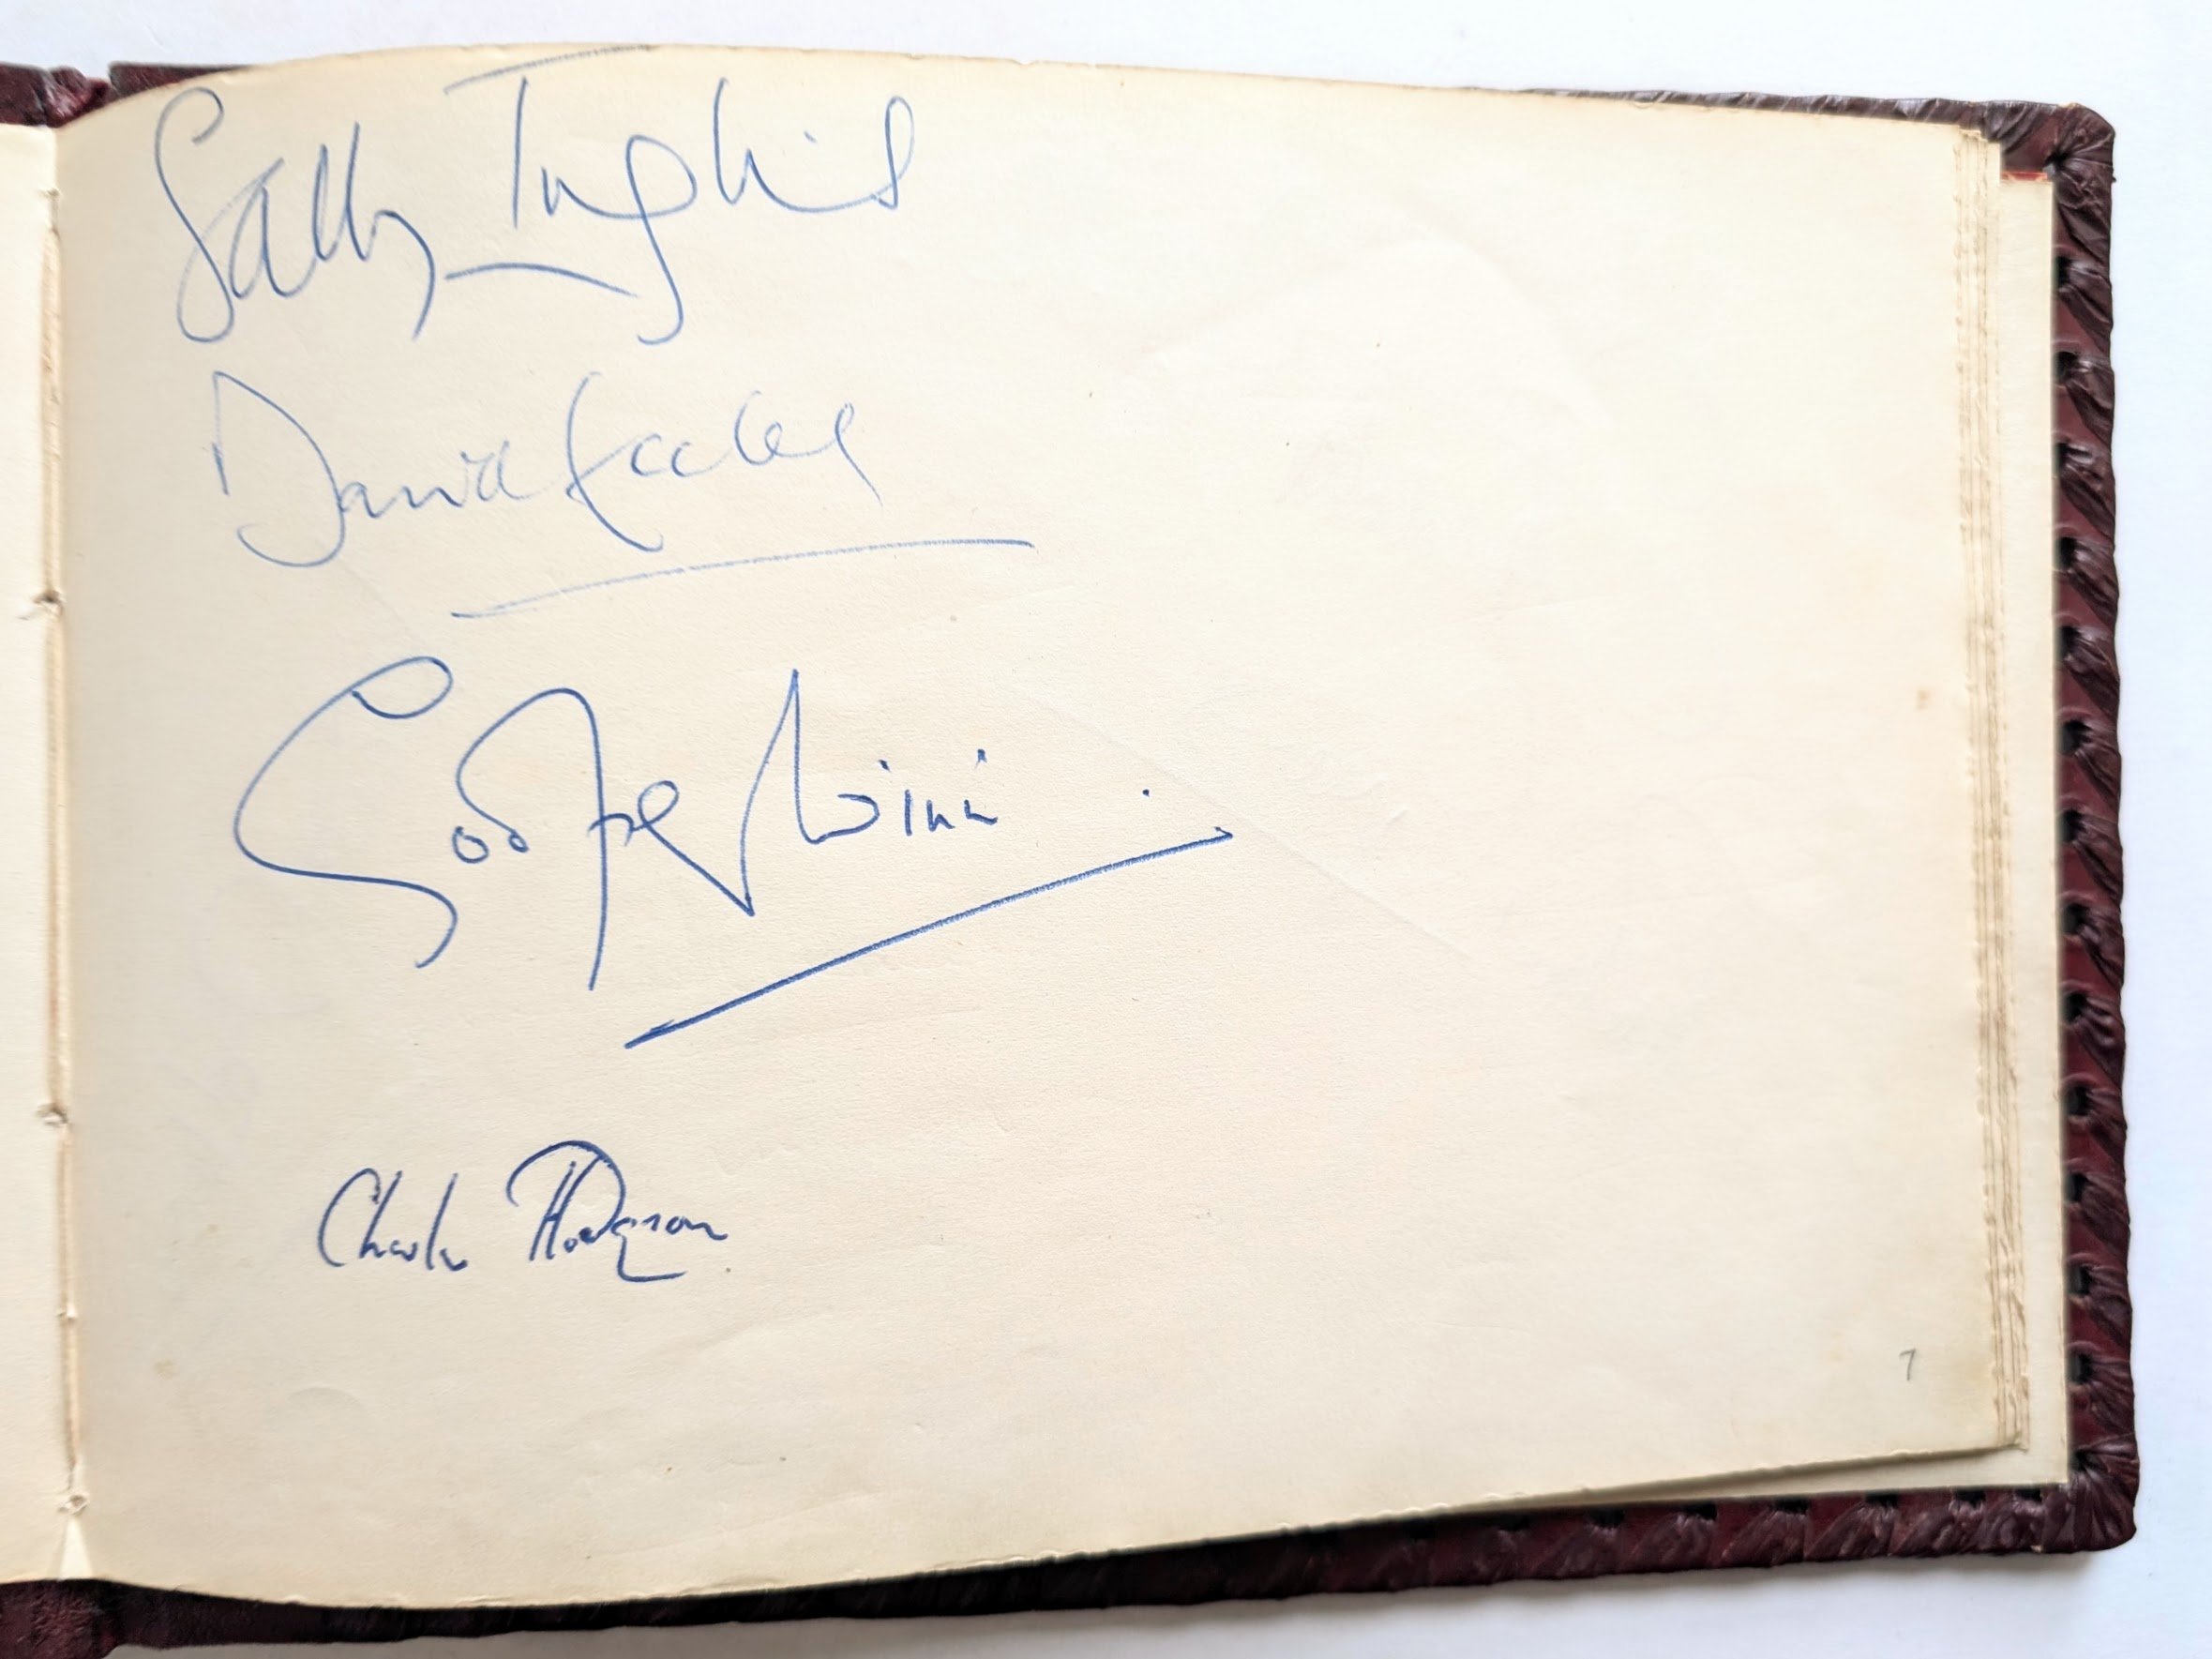 Sally Inglis
David Eccles
Godfrey Winn
Charles Hodgson
7